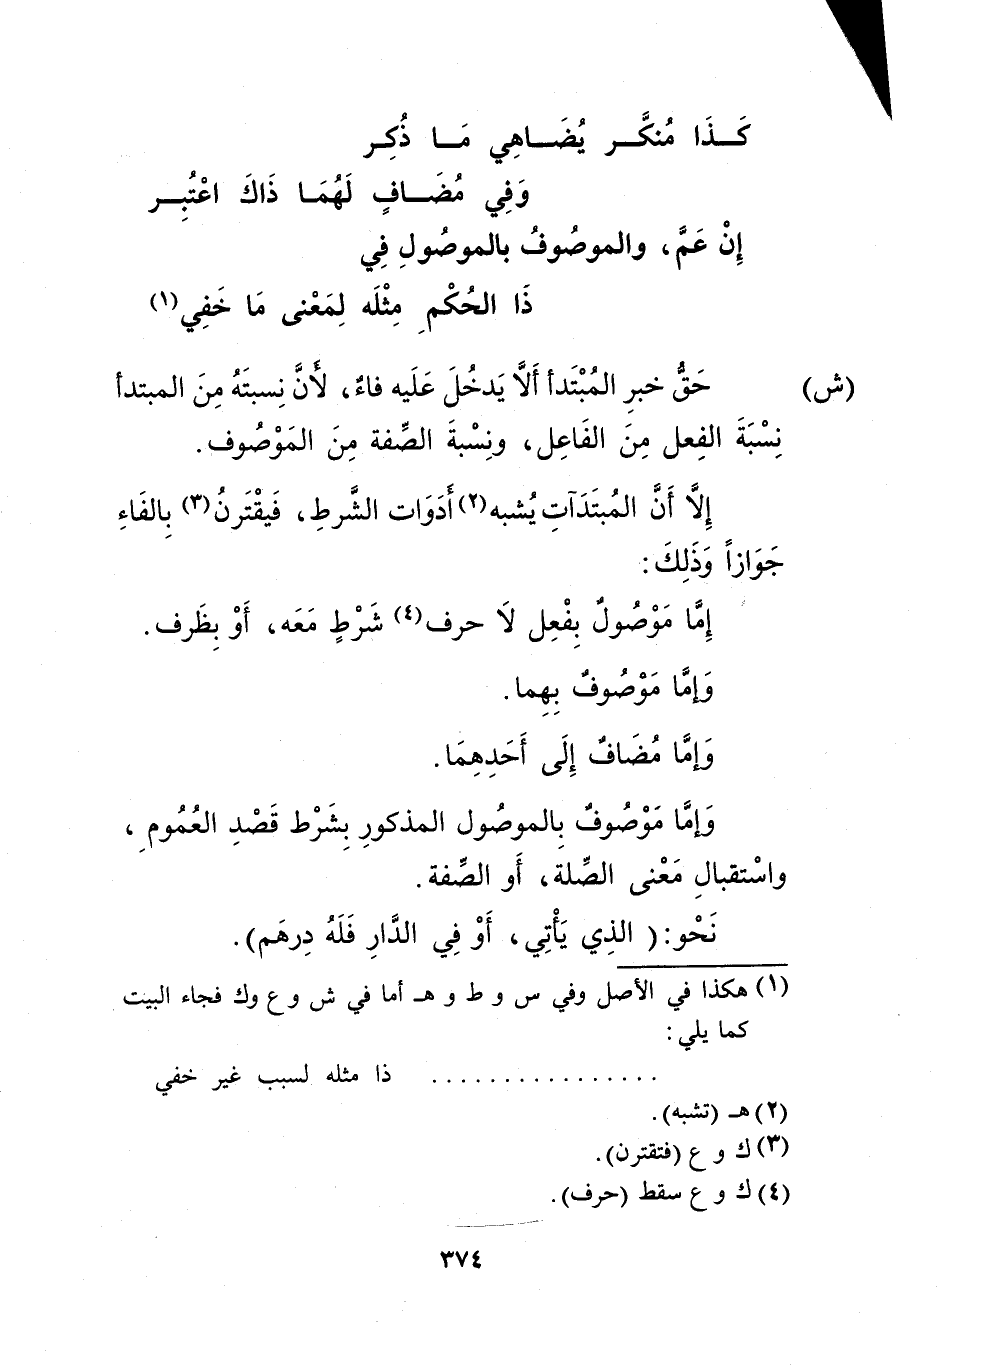 كَـــذَا مُنكَّـــر يُضَـــاهِي مَـــا ذُكِـر
وَفِي مُضَـــافٍ لَهُمَـا ذَاكَ اعْتُبِـــر
إِنْ عَمَّ، والموصُوفُ بالموصُولِ فِي
ذَا الحُكْمِ مِثْلَه لِمَعْنى مَا خَفِي(١)
(ش) حَقُّ خبرِ المُبْتَدأ أَلَّا يَدخُلَ عَلَيه فاءٌ، لأَنَّ نِسبتَهُ مِنَ المبتدأ
نِسْبَةَ الفِعل مِنَ الفَاعِل، ونِسْبةَ الصِّفة مِنَ المَوْصُوف.
إِلَّا أَنَّ المُبتَدَآتِ يُشبه(٢) أَدَوَات الشَّرطِ، فَيقْتَرنُ(٣) بِالفَاءِ
جَوَازاً وَذَلِكَ:
إِمَّا مَوْصُولٌ بِفْعِل لَا حرف(٤) شَرْطٍ مَعَه، أَوْ بِظَرف.
وَإِمَّا مَوْصُوفٌ بِهِما.
وَإِمَّا مُضَافٌ إِلَى أَحَدِهِمَا.
وَإِمَّا مَوْصُوفٌ بِالموصُول المذكورِ بِشَرْط قَصْدِ العُمُومِ،
واسْتقبالِ مَعْنى الصِّلة، أَو الصِّفة.
نَحْو: (الذِي يَأْتِي، أَوْ فِي الدَّارِ فَلَهُ دِرهَم).
(١) هكذا في الأصل وفي س و ط و هـ أما في ش و ع وك فجاء البيت
كما يلي:
. . . . . . . . . . . . . . . . ذا مثله لسبب غير خفي
(٢) هـ (تشبه).
(٣) ك و ع (فتقترن).
(٤) ك و ع سقط (حرف).
٣٧٤